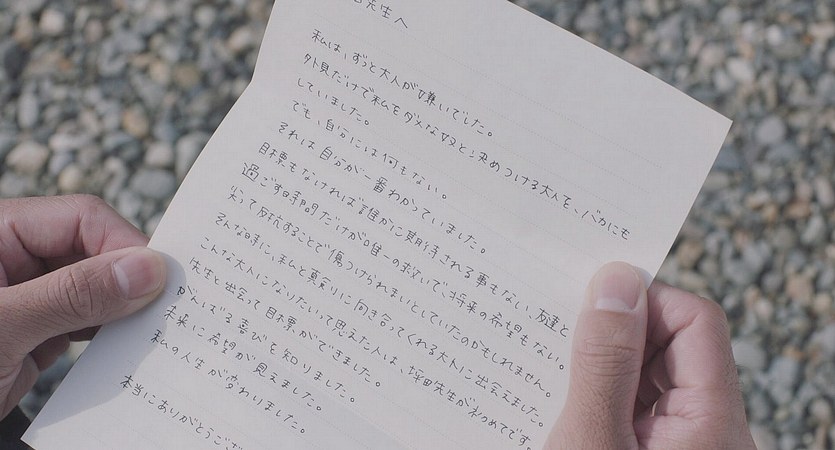 先生へ
私は、ずっと大人が嫌いでした。
外見だけで私をダメな奴と決めつける大人を、バカにも
していました。
でも、自分には何もない。
それは自分が一番わかっていました。
目標もなければ誰かに期待される事もない、友達と
過ごす時間だけが唯一の救いで、将来の希望もない。
笑って反抗することで傷つけられまいとしていたのかもしれません。
そんな時に、私と真剣に向き合ってくれる大人に出会えました。
こんな大人になりたいって思えた人は、坪田先生が初めてです。
先生と出会って目標ができました。
がんばる喜びを知りました。
未来に希望が見えました。
私の人生が変わりました。
本当にありがとうござ